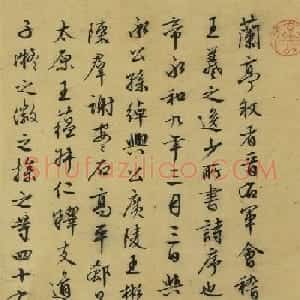 蘭亭叙者晉右軍會稽
王羲之逸少所書詩序也
帝永和九年三月三日與
承公孫綽興公廣陵王彬
陳郡謝安石高平郗
太原王蘊叔仁釋支遁
子凝之徽之操之等四十
Shufaziliao.com